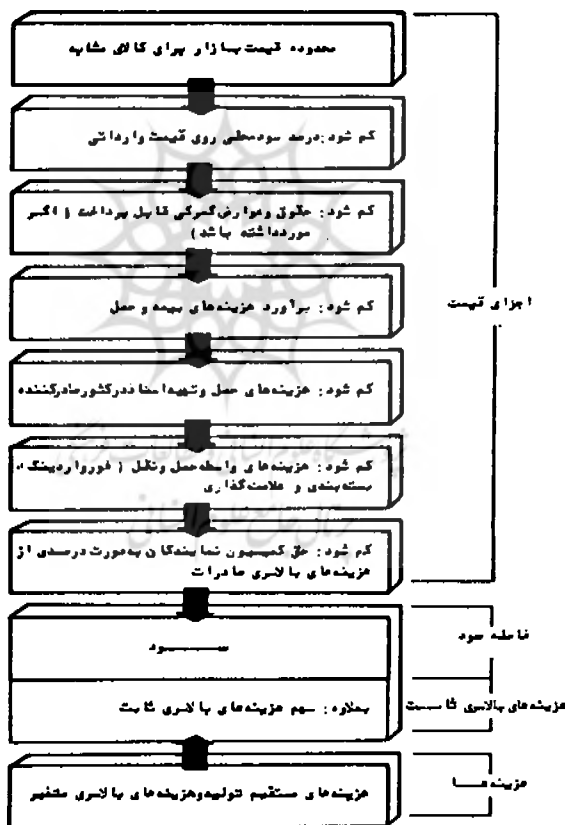 محدوده قیمت بازار برای کالای مشابه
کم شود: درصد سود محلی روی قیمت وارداتی
کم شود: حقوق و عوارض گمرکی قابل پرداخت ( اگر
مورد داشته باشد )
کم شود: برآورد هزینه‌های بیمه و حمل
کم شود: هزینه‌های حمل و تهیه اسناد در کشور صادرکننده
کم شود: هزینه‌های واسطه حمل و نقل ( فورواردینگ )،
بسته‌بندی و علامت‌گذاری
کم شود: حق کمیسیون نمایندگان به‌صورت درصدی از
هزینه‌های بالاسری صادرات
اجزای قیمت
ســــــود
فاصله سود
بعلاوه: سهم هزینه‌های بالاسری ثابت
هزینه‌های بالاسری ثابت
هزینه‌های مستقیم تولید و هزینه‌های بالاسری متغیر
هزینه‌ها
پژوهشگاه علوم انسانی و مطالعات فرهنگی
پرتال جامع علوم انسانی